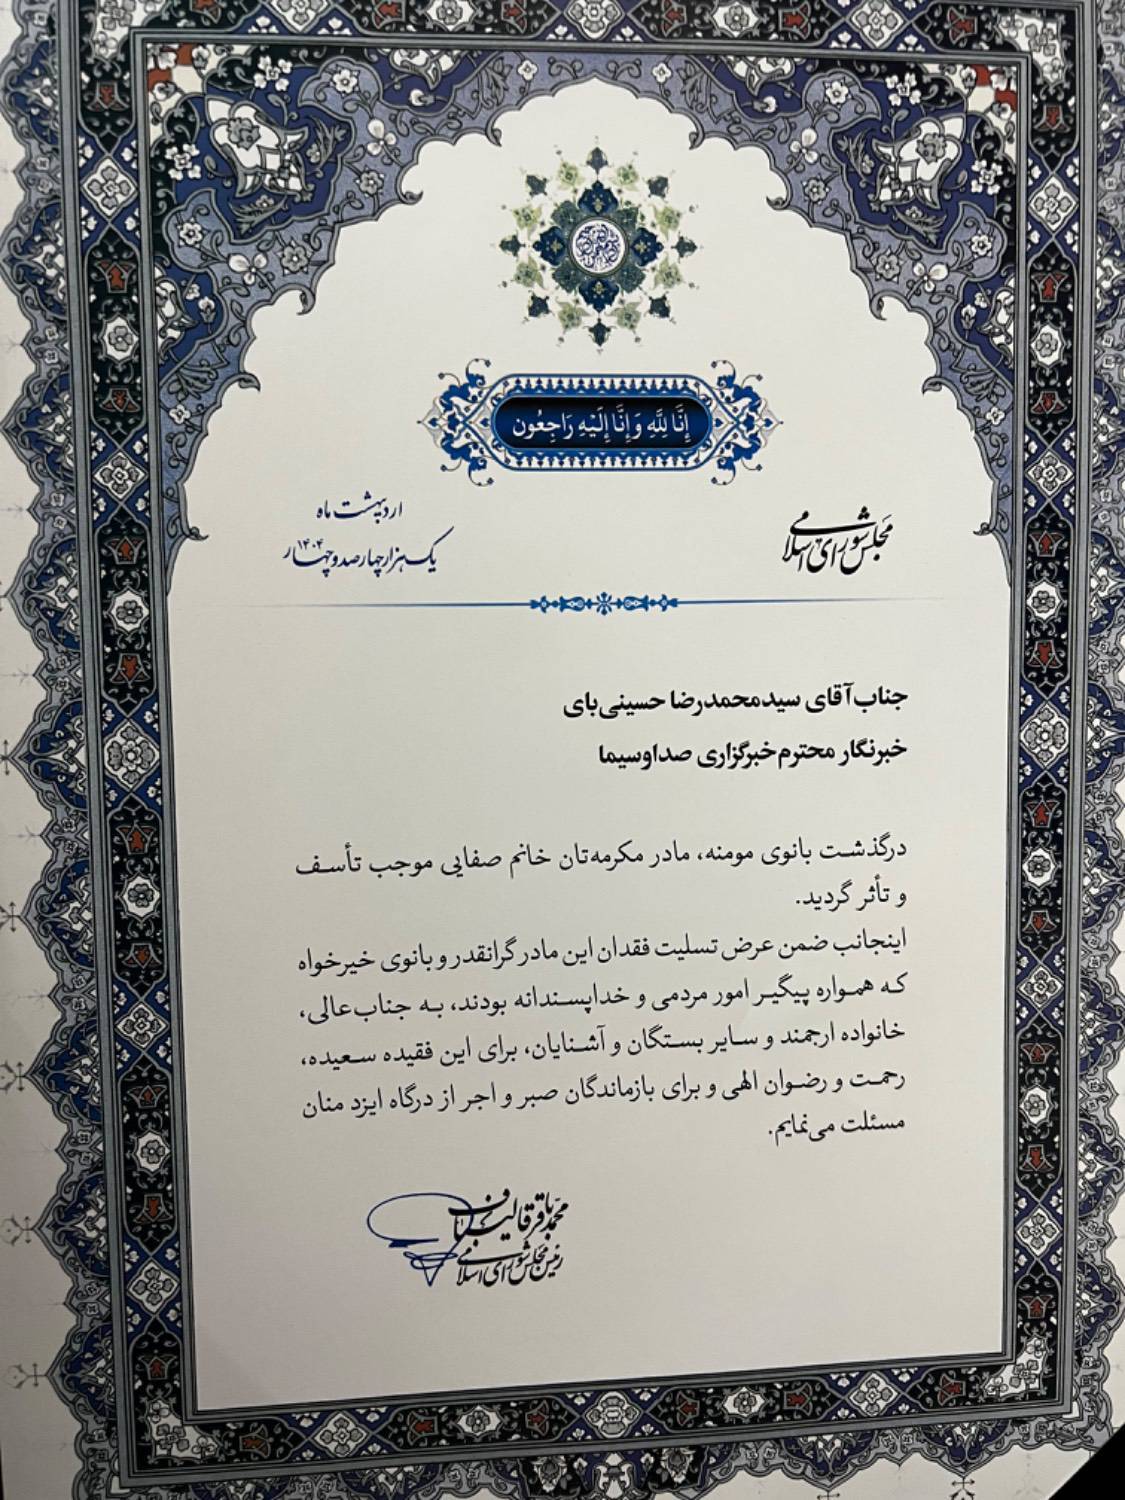 إِنَّا لِلَّهِ وَإِنَّا إِلَيْهِ رَاجِعُون
مجلس شورای اسلامی
اردیبهشت ماه
یک هزار چهارصد و چهار
۱۴۰۴
جناب آقای سیدمحمدرضا حسینی‌بای
خبرنگار محترم خبرگزاری صداوسیما
درگذشت بانوی مومنه، مادر مکرمه‌تان خانم صفایی موجب تأسف
و تأثر گردید.
اینجانب ضمن عرض تسلیت فقدان این مادر گرانقدر و بانوی خیرخواه
که همواره پیگیر امور مردمی و خداپسندانه بودند، به جناب‌عالی،
خانواده ارجمند و سایر بستگان و آشنایان، برای این فقیده سعیده،
رحمت و رضوان الهی و برای بازماندگان صبر و اجر از درگاه ایزد منان
مسئلت می‌نمایم.
محمدباقر قالیباف
رئیس مجلس شورای اسلامی